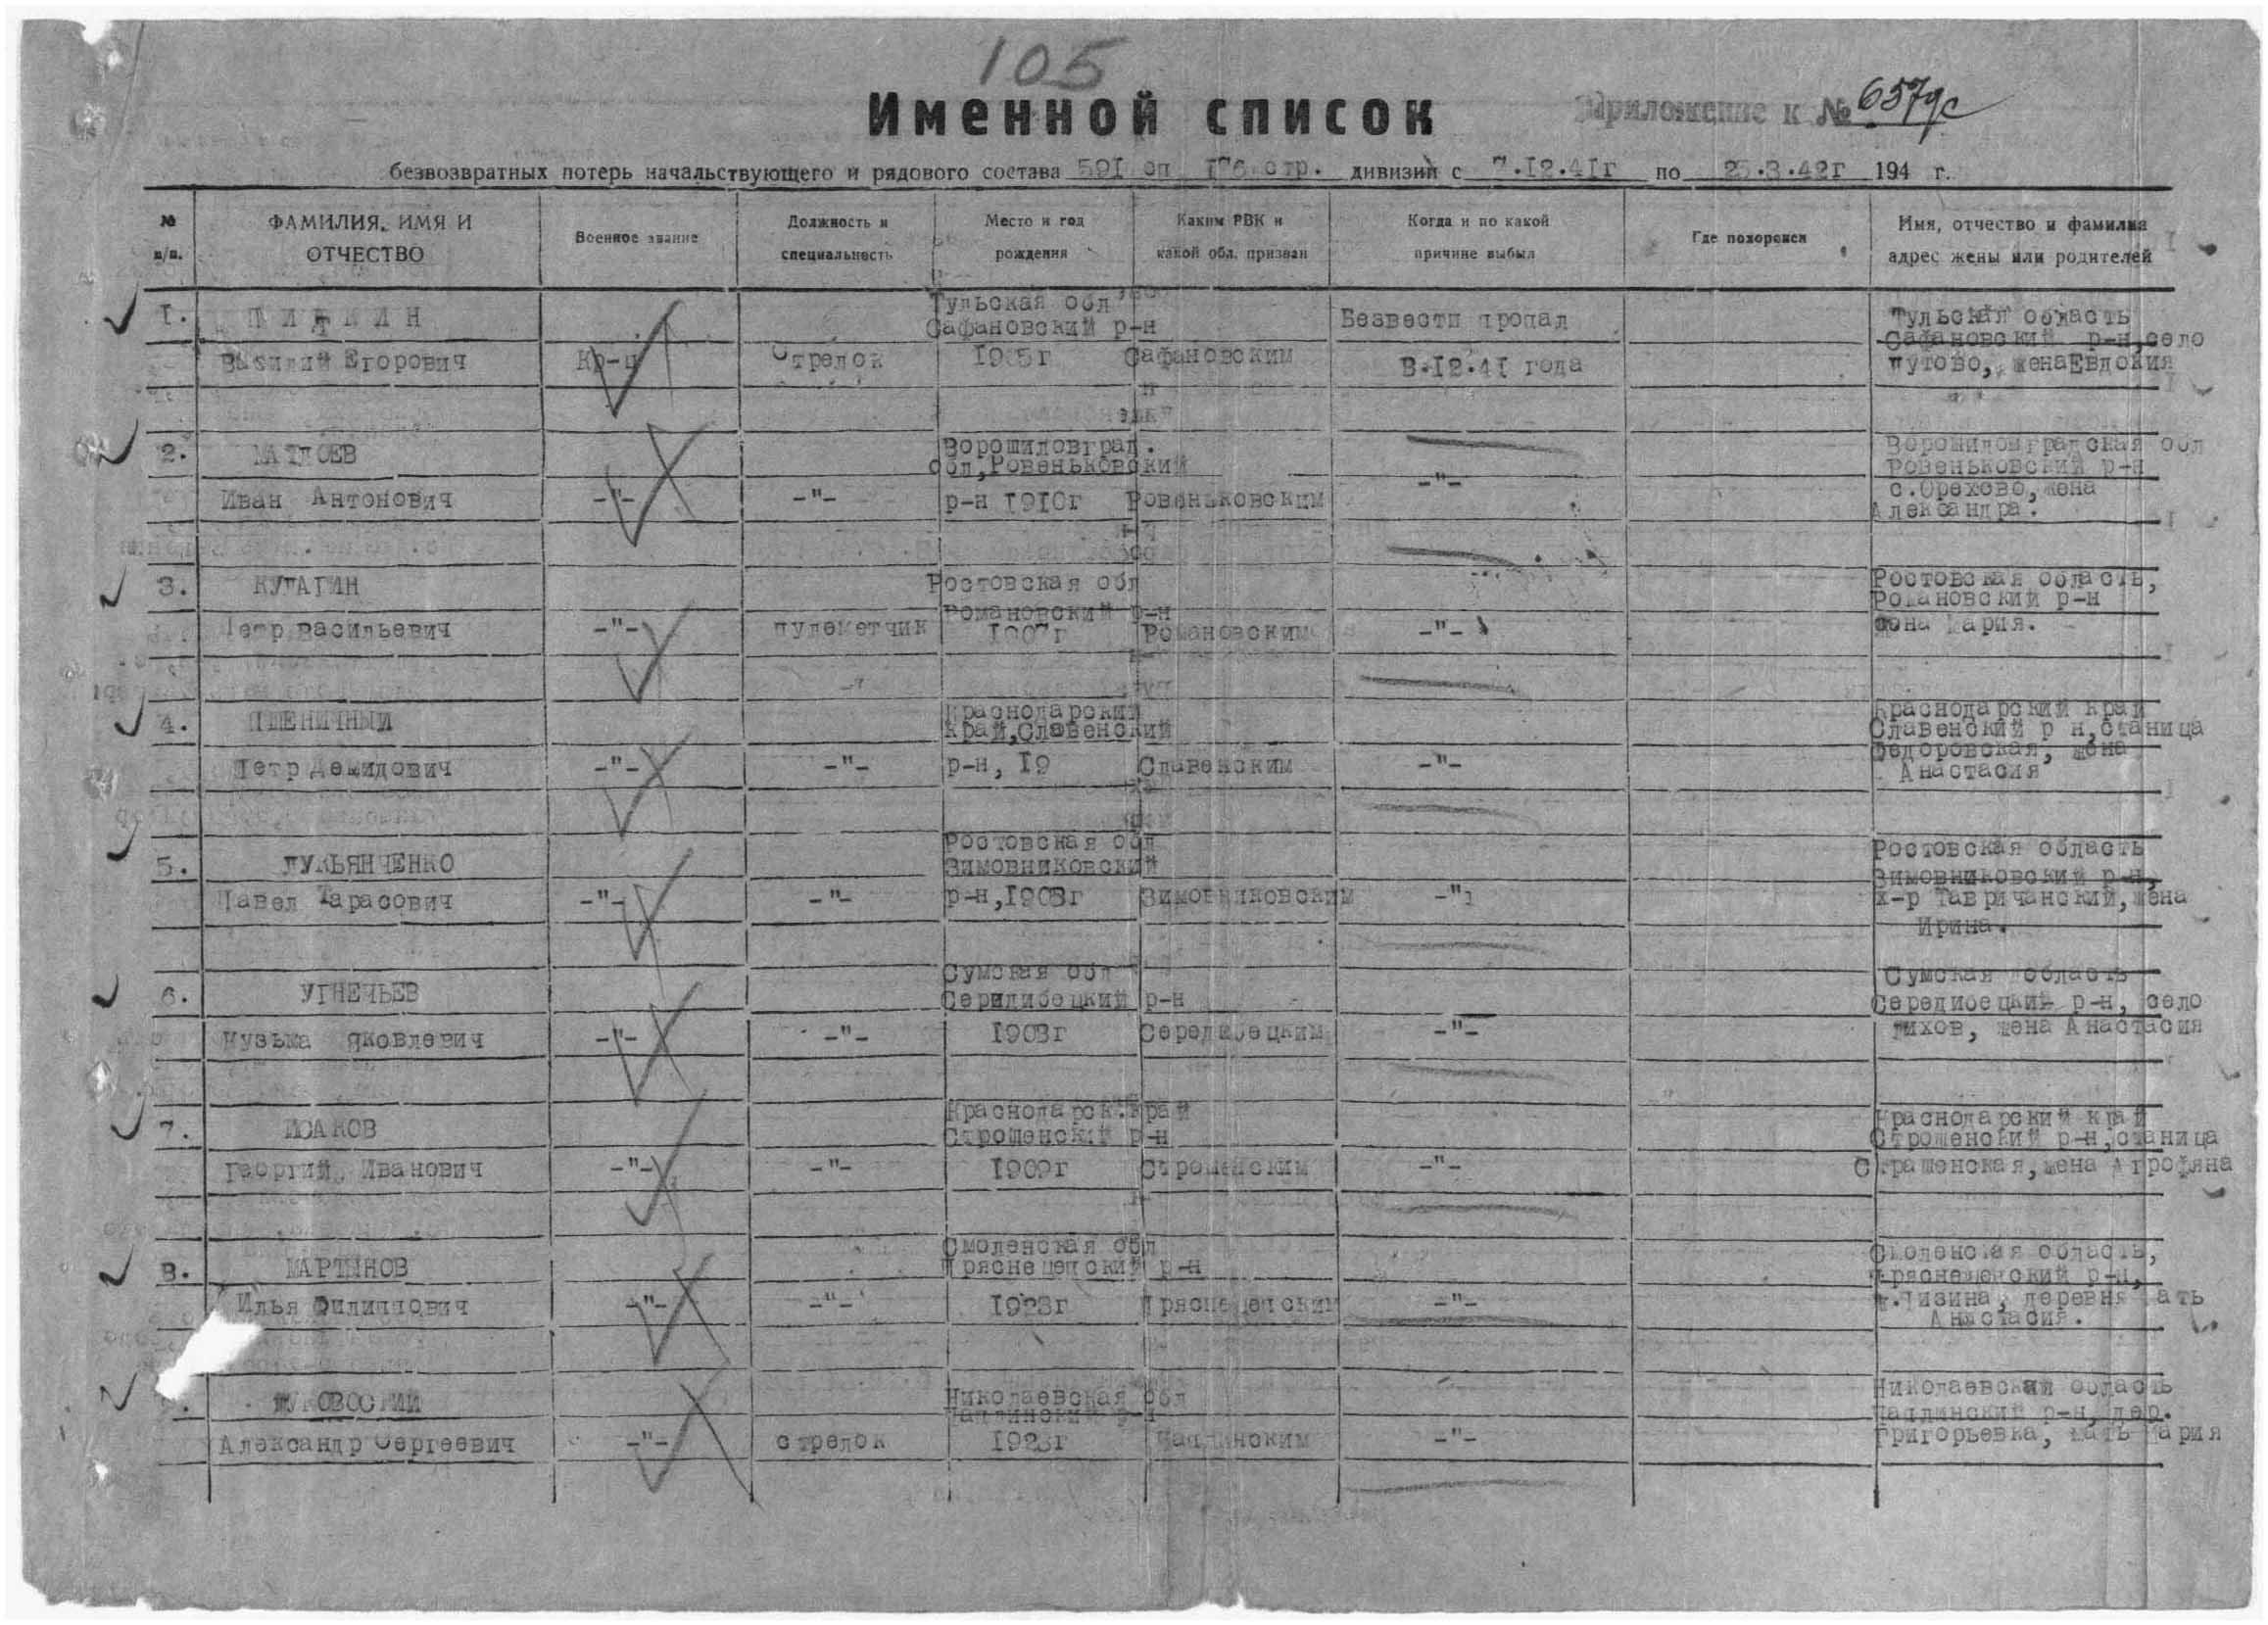 105
Именной список
Приложение к № 657дс
безвозвратных потерь начальствующего и рядового состава 591 сп 176 стр. дивизий с 7.12.41г по 25.3.42г 194 г.
№ п/п.
ФАМИЛИЯ, ИМЯ И ОТЧЕСТВО
Военное звание
Должность и специальность
Место и год рождения
Каким РВК и какой обл. призван
Когда и по какой причине выбыл
Где похоронен
Имя, отчество и фамилия адрес жены или родителей
1.
Василий Егорович
Кр-ц
Стрелок
Тульская обл
Сафановский р-н
Сафановским
Безвести пропал
8.12.41 года
Тульская область
Сафановский р-н, село
жена Евдокия
2.
Иван Антонович
-"-
-"-
Ворошиловград.
обл, Ровеньковский
р-н 1910г
Ровеньковским
-"-
Ворошиловградская обл
Ровеньковский р-н
с.Орехово, жена
Александра.
3.
Петр Васильевич
-"-
пулеметчик
Ростовская обл
Романовский р-н
1907г
Романовским
-"-
Ростовская область,
Романовский р-н
жена Мария.
4.
ПШЕНИЧНЫЙ
Петр Демидович
-"-
-"-
Краснодарский
край, Славенский
р-н, 19
Славенским
-"-
Краснодарский край
Славенский р н, станица
Федоровская, жена
Анастасия
5.
ЛУКЬЯНЧЕНКО
Павел Тарасович
-"-
-"-
Ростовская обл
Зимовниковский
р-н, 1908г
Зимовниковским
-"-
Ростовская область
Зимовниковский р-н,
х-р Тавричанский, жена
Ирина.
6.
УГНЕЧЬЕВ
Кузьма Яковлевич
-"-
-"-
Сумская обл
Серидибецкий р-н
1908г
Середибецким
-"-
Сумская область
Середибецкий р-н, село
жена Анастасия
7.
ИСАКОВ
Георгий Иванович
-"-
-"-
Краснодарск.край
Строменский р-н
1909г
Строменским
-"-
Краснодарский край
Строменский р-н, станица
жена
8.
МАРТЫНОВ
Илья Филиппович
-"-
-"-
Смоленская обл
р-н
1923г
-"-
Смоленская область,
р-н,
деревня мать
Анастасия.
Александр Сергеевич
-"-
стрелок
Николаевская обл
Чаплинский р-н
1923г
Чаплинским
-"-
Николаевская область
Чаплинский р-н, дер.
Григорьевка, мать Мария